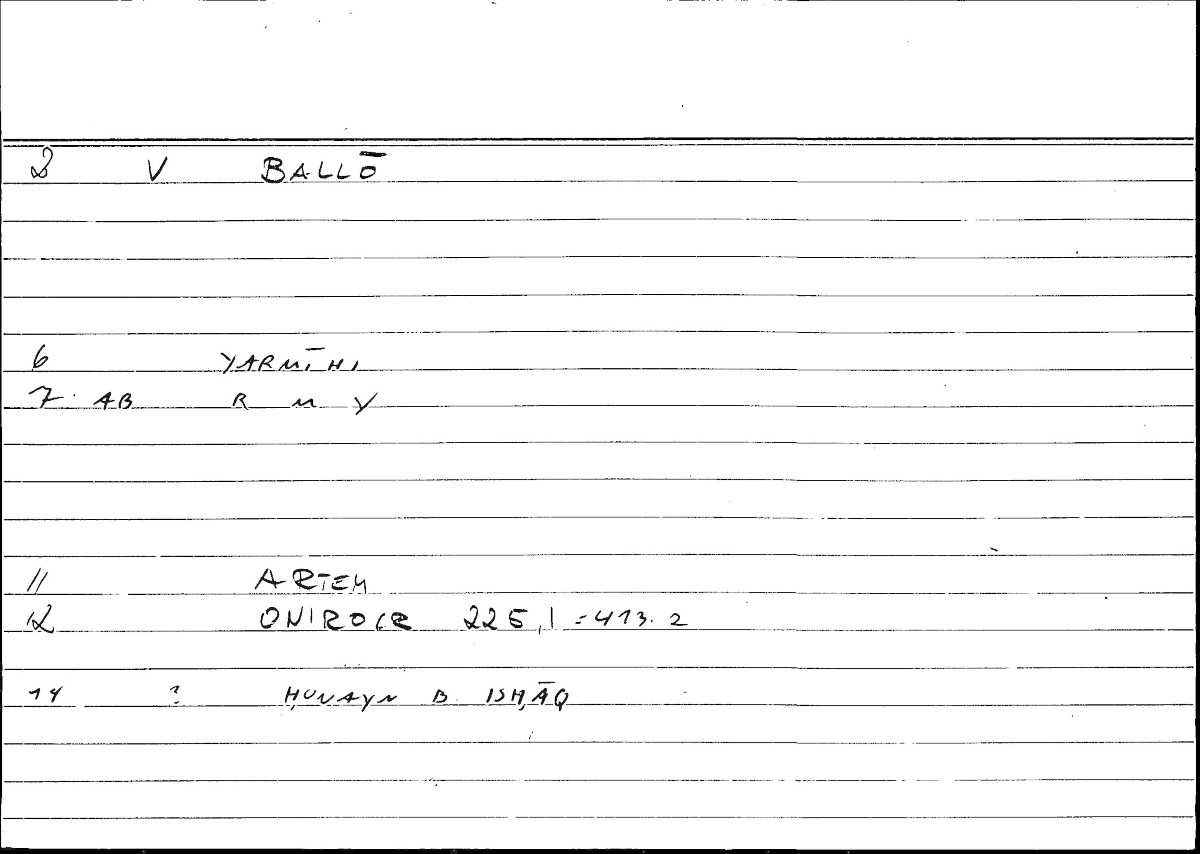 2 V BALLŌ
6 YARMĪHI
7. AB R M Y
11 ARTEM
12 ONIROCR 225,1 = 413.2
14 ? ḤUNAYN B. ISḤĀQ